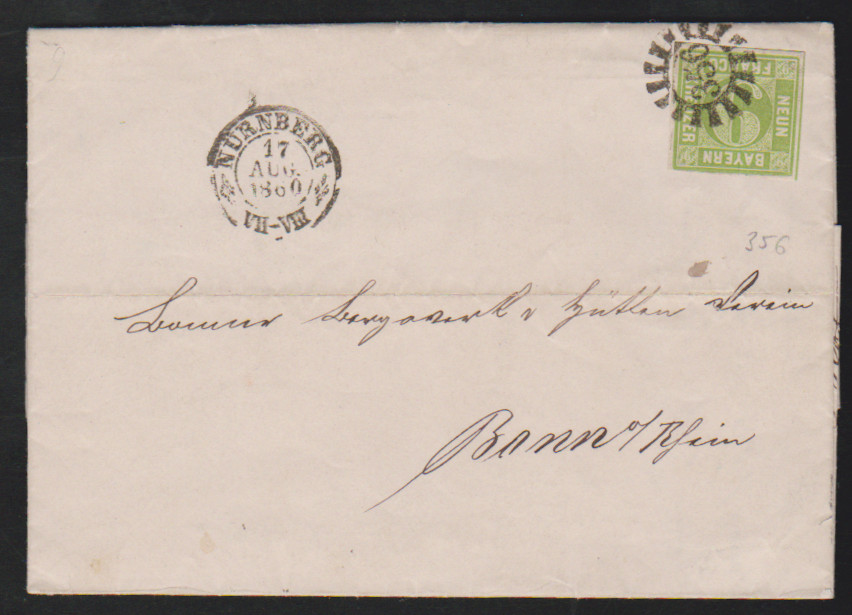 356
FRANCO
NEUN
BAYERN
KREUZER
9
NÜRNBERG
17
AUG.
1860
VII-VIII
356
Bonner Bergwerks & Hütten Verein
Bonn a/Rhein